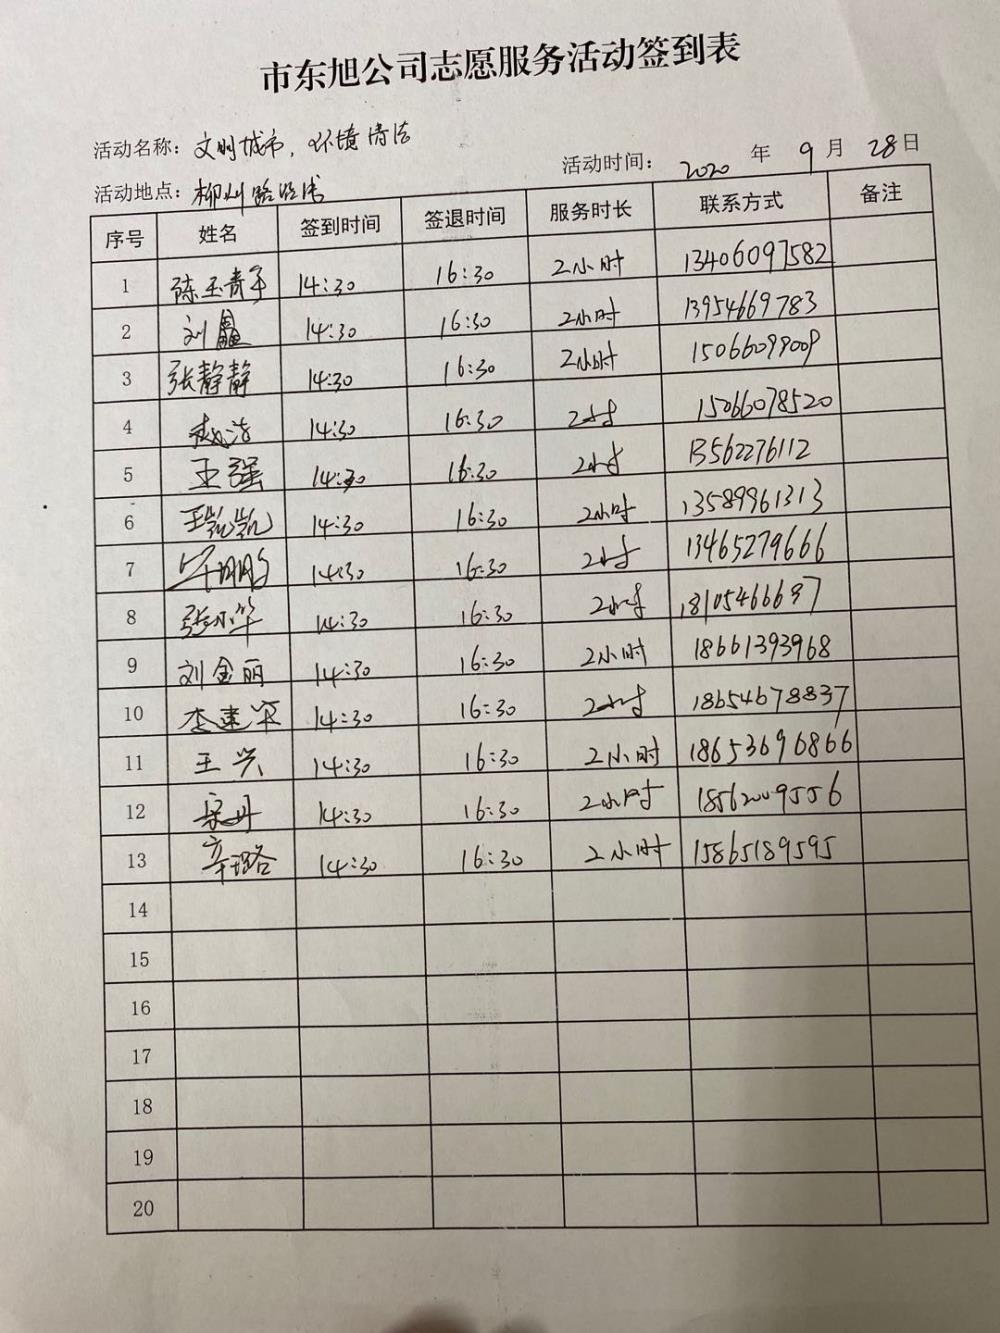 市东旭公司志愿服务活动签到表
活动名称：文明城市，环境清洁
活动时间： 2020 年 9 月 28 日
活动地点：柳州路
序号 姓名 签到时间 签退时间 服务时长 联系方式 备注
1 陈玉青子 14:30 16:30 2小时 13406097582
2 刘 14:30 16:30 2小时 13954669783
3 张静静 14:30 16:30 2小时 15066099009
4 赵洁 14:30 16:30 2小时 15066078520
5 王强 14:30 16:30 2小时 13562276112
6 王凯凯 14:30 16:30 2小时 13589961313
7 14:30 16:30 2小时 13465279666
8 张小华 14:30 16:30 2小时 18105466697
9 刘金丽 14:30 16:30 2小时 18661393968
10 李建华 14:30 16:30 2小时 18654678837
11 王兴 14:30 16:30 2小时 18653696866
12 宋丹 14:30 16:30 2小时 18562009556
13 辛璐 14:30 16:30 2小时 15865189595
14
15
16
17
18
19
20